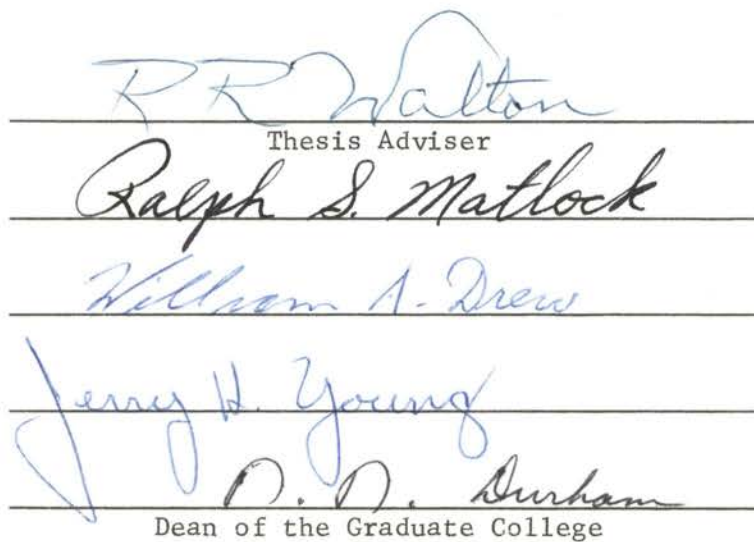 R R Walton
Thesis Adviser
Ralph S. Matlock
William A. Drew
Jerry H. Young
D. D. Durham
Dean of the Graduate College